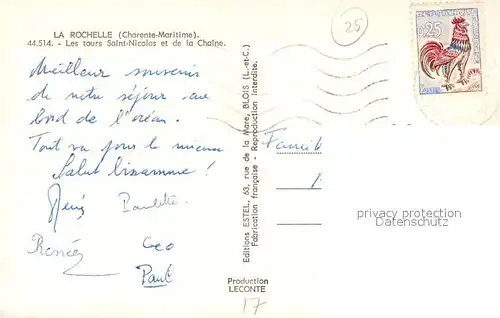 LA ROCHELLE (Charente-Maritime).
44.514. - Les tours Saint-Nicolas et de la Chaîne.
Meilleur souvenir
de notre séjour au
bord de l'océan.
Tout va pour le mieux
Salut
René Paulette
Renée Geo
Paul
Editions ESTEL, 63, rue de la Mare, BLOIS (L.-et-C.)
Fabrication française - Reproduction interdite.
Production
LECONTE
17
25
0,25
Famil
privacy protection
Datenschutz